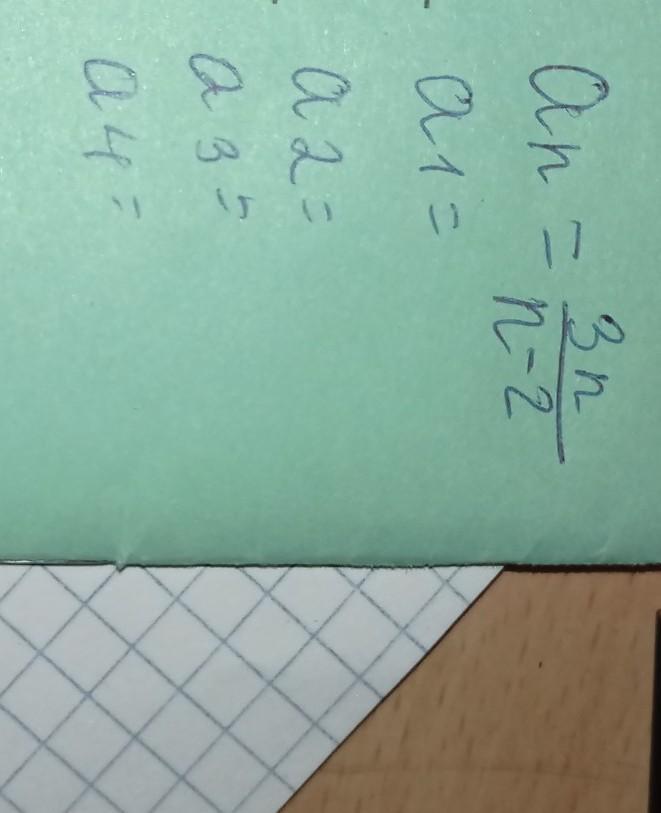 an = 3n/n-2
a1 =
a2 =
a3 =
a4 =